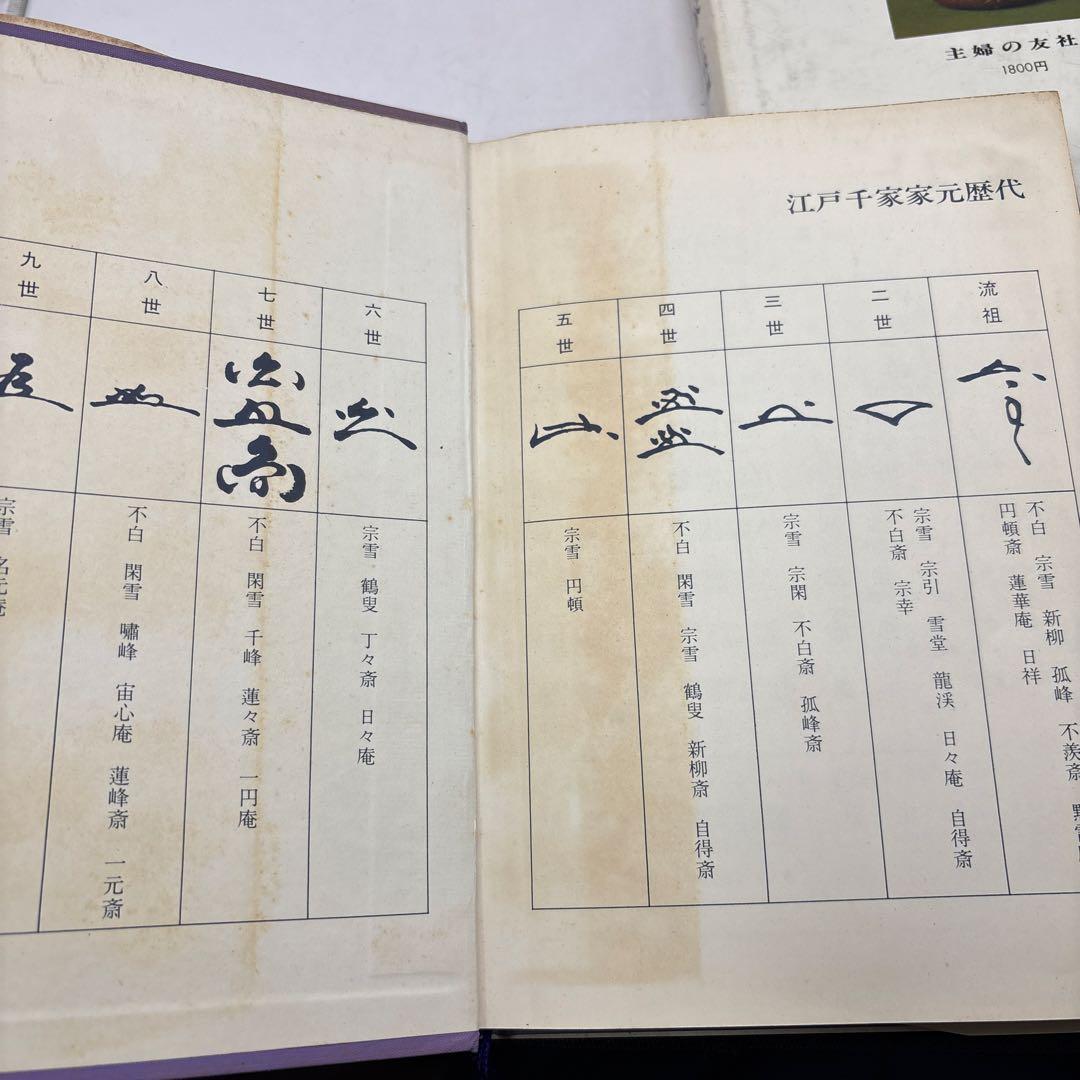 主婦の友社
1800円
江戸千家家元歴代
流祖
不白 宗雪 新柳 孤峰 不羨斎
円頓斎 蓮華庵 日祥
二世
宗雪 宗引 雪堂 龍渓 日々庵 自得斎
不白斎 宗幸
三世
宗雪 宗閑 不白斎 孤峰斎
四世
不白 閑雪 宗雪 鶴叟 新柳斎 自得斎
五世
宗雪 円頓
六世
宗雪 鶴叟 丁々斎 日々庵
七世
不白 閑雪 千峰 蓮々斎 一円庵
八世
不白 閑雪 嘯峰 宙心庵 蓮峰斎 一元斎
九世
宗雪 名元庵